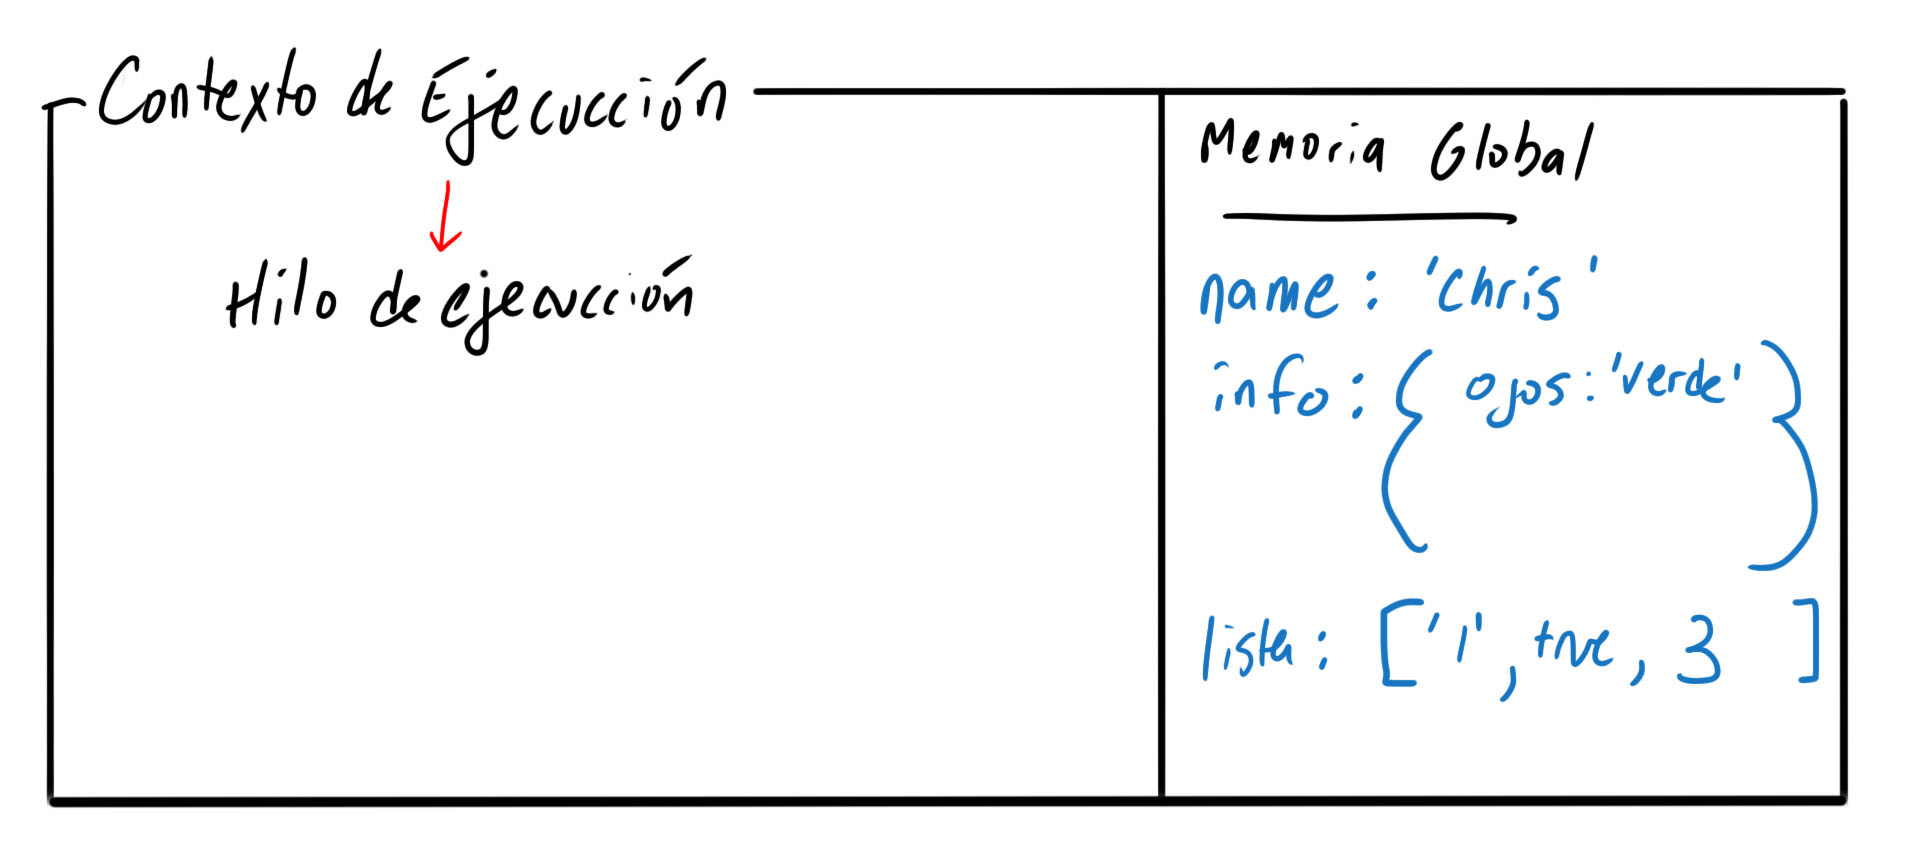 Contexto de Ejecucción
Hilo de ejecucción
Memoria Global
name: 'Chris'
info: { ojos: 'verde' }
lista: ['1', true, 3 ]